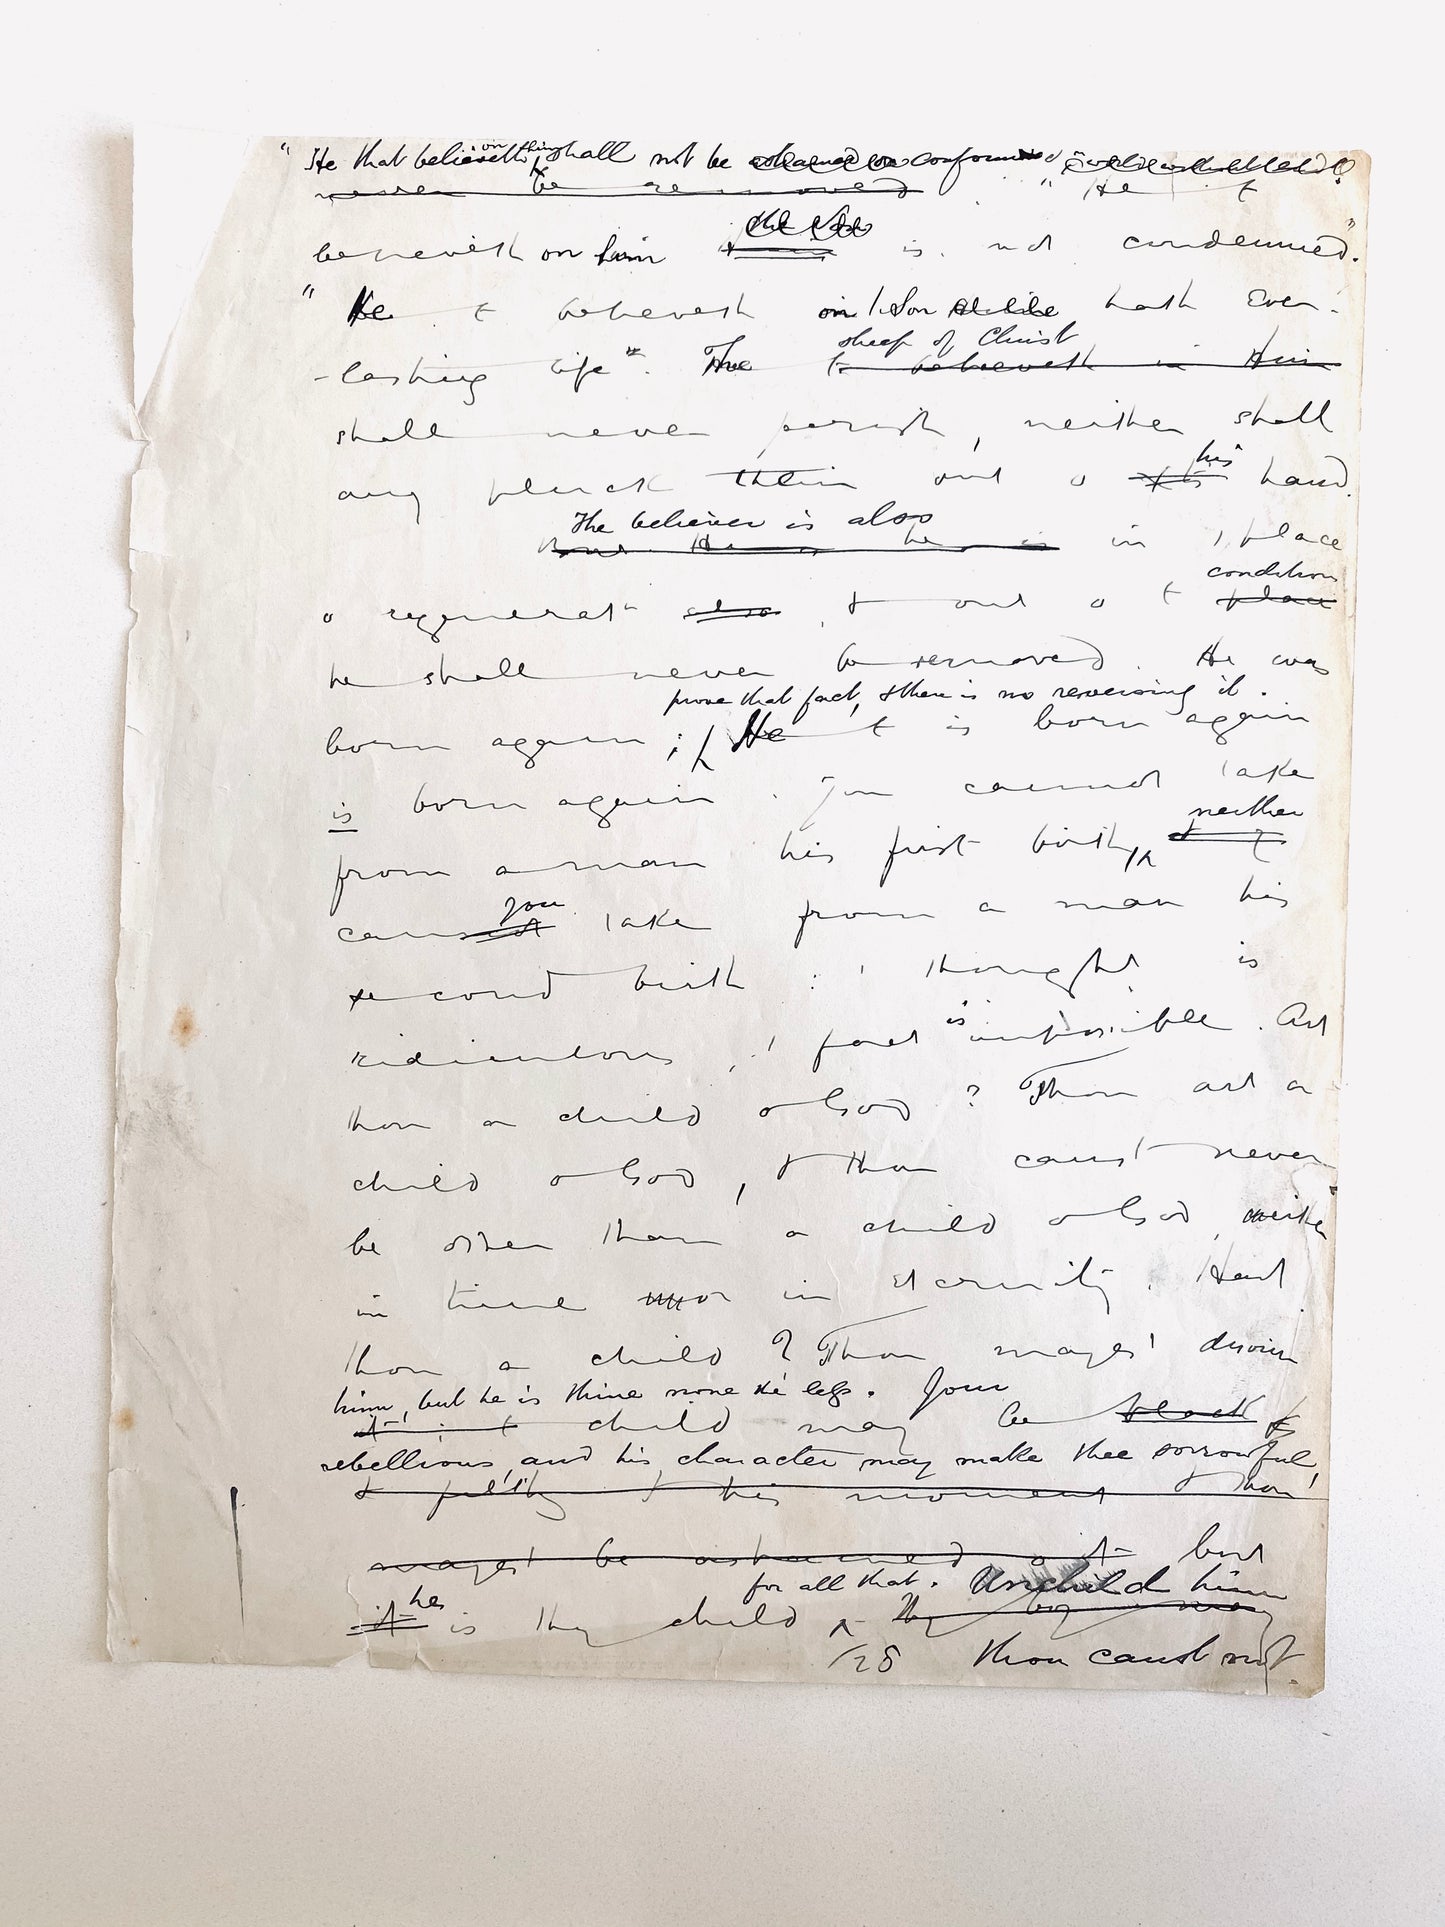 " He that believeth on him shall not be confounded
never be removed " He t
believeth on him is not condemned."
" He t believeth on / Son hath Ever-
sheep of Christ
-lasting life". The t believeth in Him
shall never perish, neither shall
his
any pluck them out o hand.
The believer is also
he is in / place
condition
o regenerat also, & out o t place
he shall never be removed. He was
prove that fact, & there is no reversing it.
born again; He t is born again
is born again. You cannot take
neither
from a man his first birth,
you
cannot take from a man his
second birth: / thought is
is
ridiculous, / fact impossible. Art
thou a child o God? Thou art a
child o God, & thou canst never
be other than a child o God, neither
in time or in eternity. Hast
thou a child? Thou mayest disown
him, but he is thine none the less. Your
child may be black &
rebellious, and his character may make thee sorrowful,
& filthy & this moment & thou
mayest be ashamed o it but
for all that. Unchild him
he
it is thy child
/28 thou canst not.